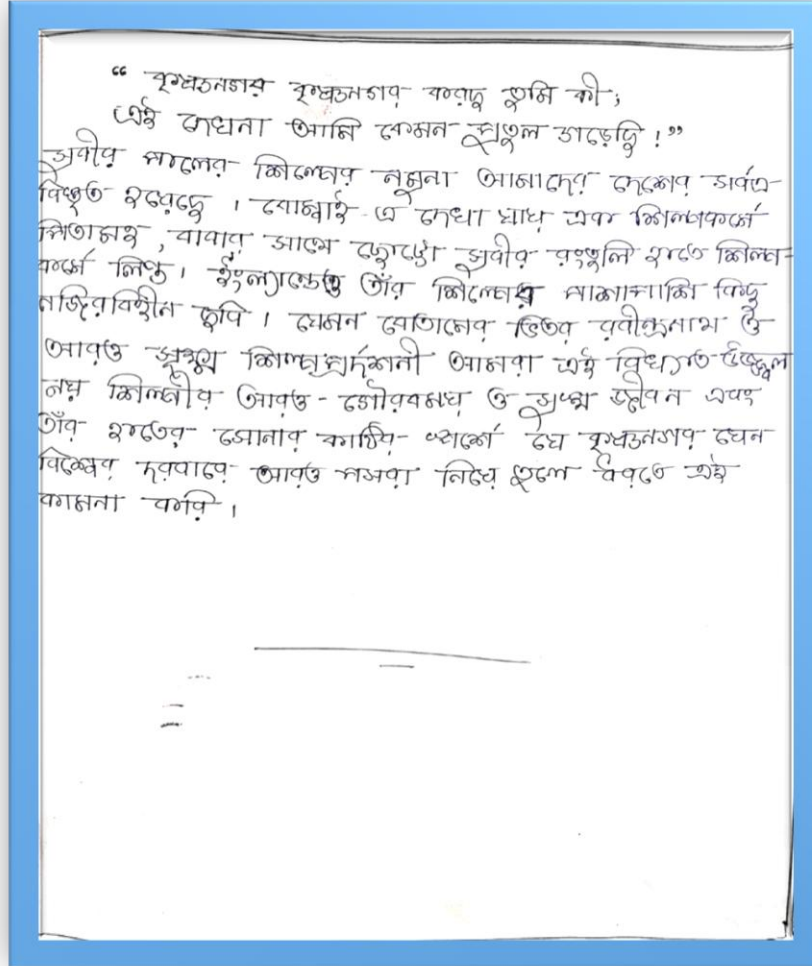 “ কৃষ্ণনগর কৃষ্ণনগর করছ তুমি কী,
এই দেখনা আমি কেমন পুতুল গড়েছি !”
সুবীর পালের শিল্পের নমুনা আমাদের দেশের সর্বত্র
বিস্তৃত রয়েছে । বোম্বাই এ দেখা যায় এক শিল্পকর্মে
পিতামহ, বাবার সাথে ছোট্টো সুবীর রংতুলি হাতে শিল্প-
কর্মে লিপ্ত। ইংল্যান্ডেও তাঁর শিল্পের পাশাপাশি কিছু
নজিরবিহীন ছবি । যেমন বোতামের ভিতর রবীন্দ্রনাথ ও
আরও সূক্ষ্ম শিল্পপ্রর্দশনী আমরা এই বিখ্যাত উজ্জ্বল
ময় শিল্পীর আরও - গৌরবময় ও সুস্থ জীবন এবং
তাঁর হাতের সোনার কাঠির স্পর্শে যে কৃষ্ণনগর যেন
বিশ্বের দরবারে আরও পসরা নিয়ে তুলে ধরতে এই
কামনা করি ।